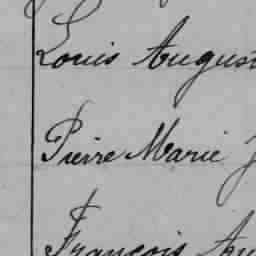 Louis August
Pierre Marie J
François Au